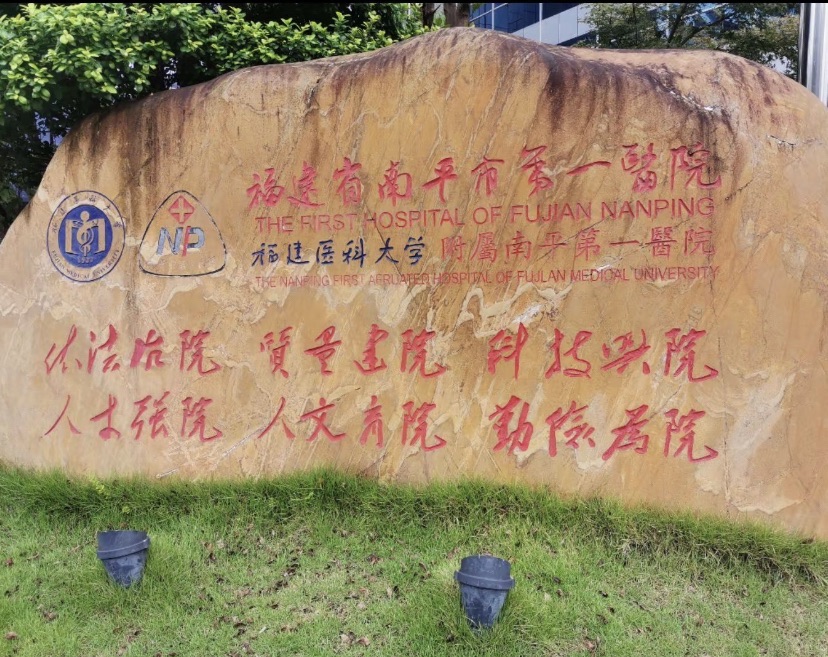 福建省南平市第一醫院
THE FIRST HOSPITAL OF FUJIAN NANPING
福建医科大学 附屬南平第一醫院
THE NANPING FIRST AFFILIATED HOSPITAL OF FUJLAN MEDICAL UNIVERSITY
NP
依法治院 質量建院 科技興院
人才强院 人文育院 勤儉為院